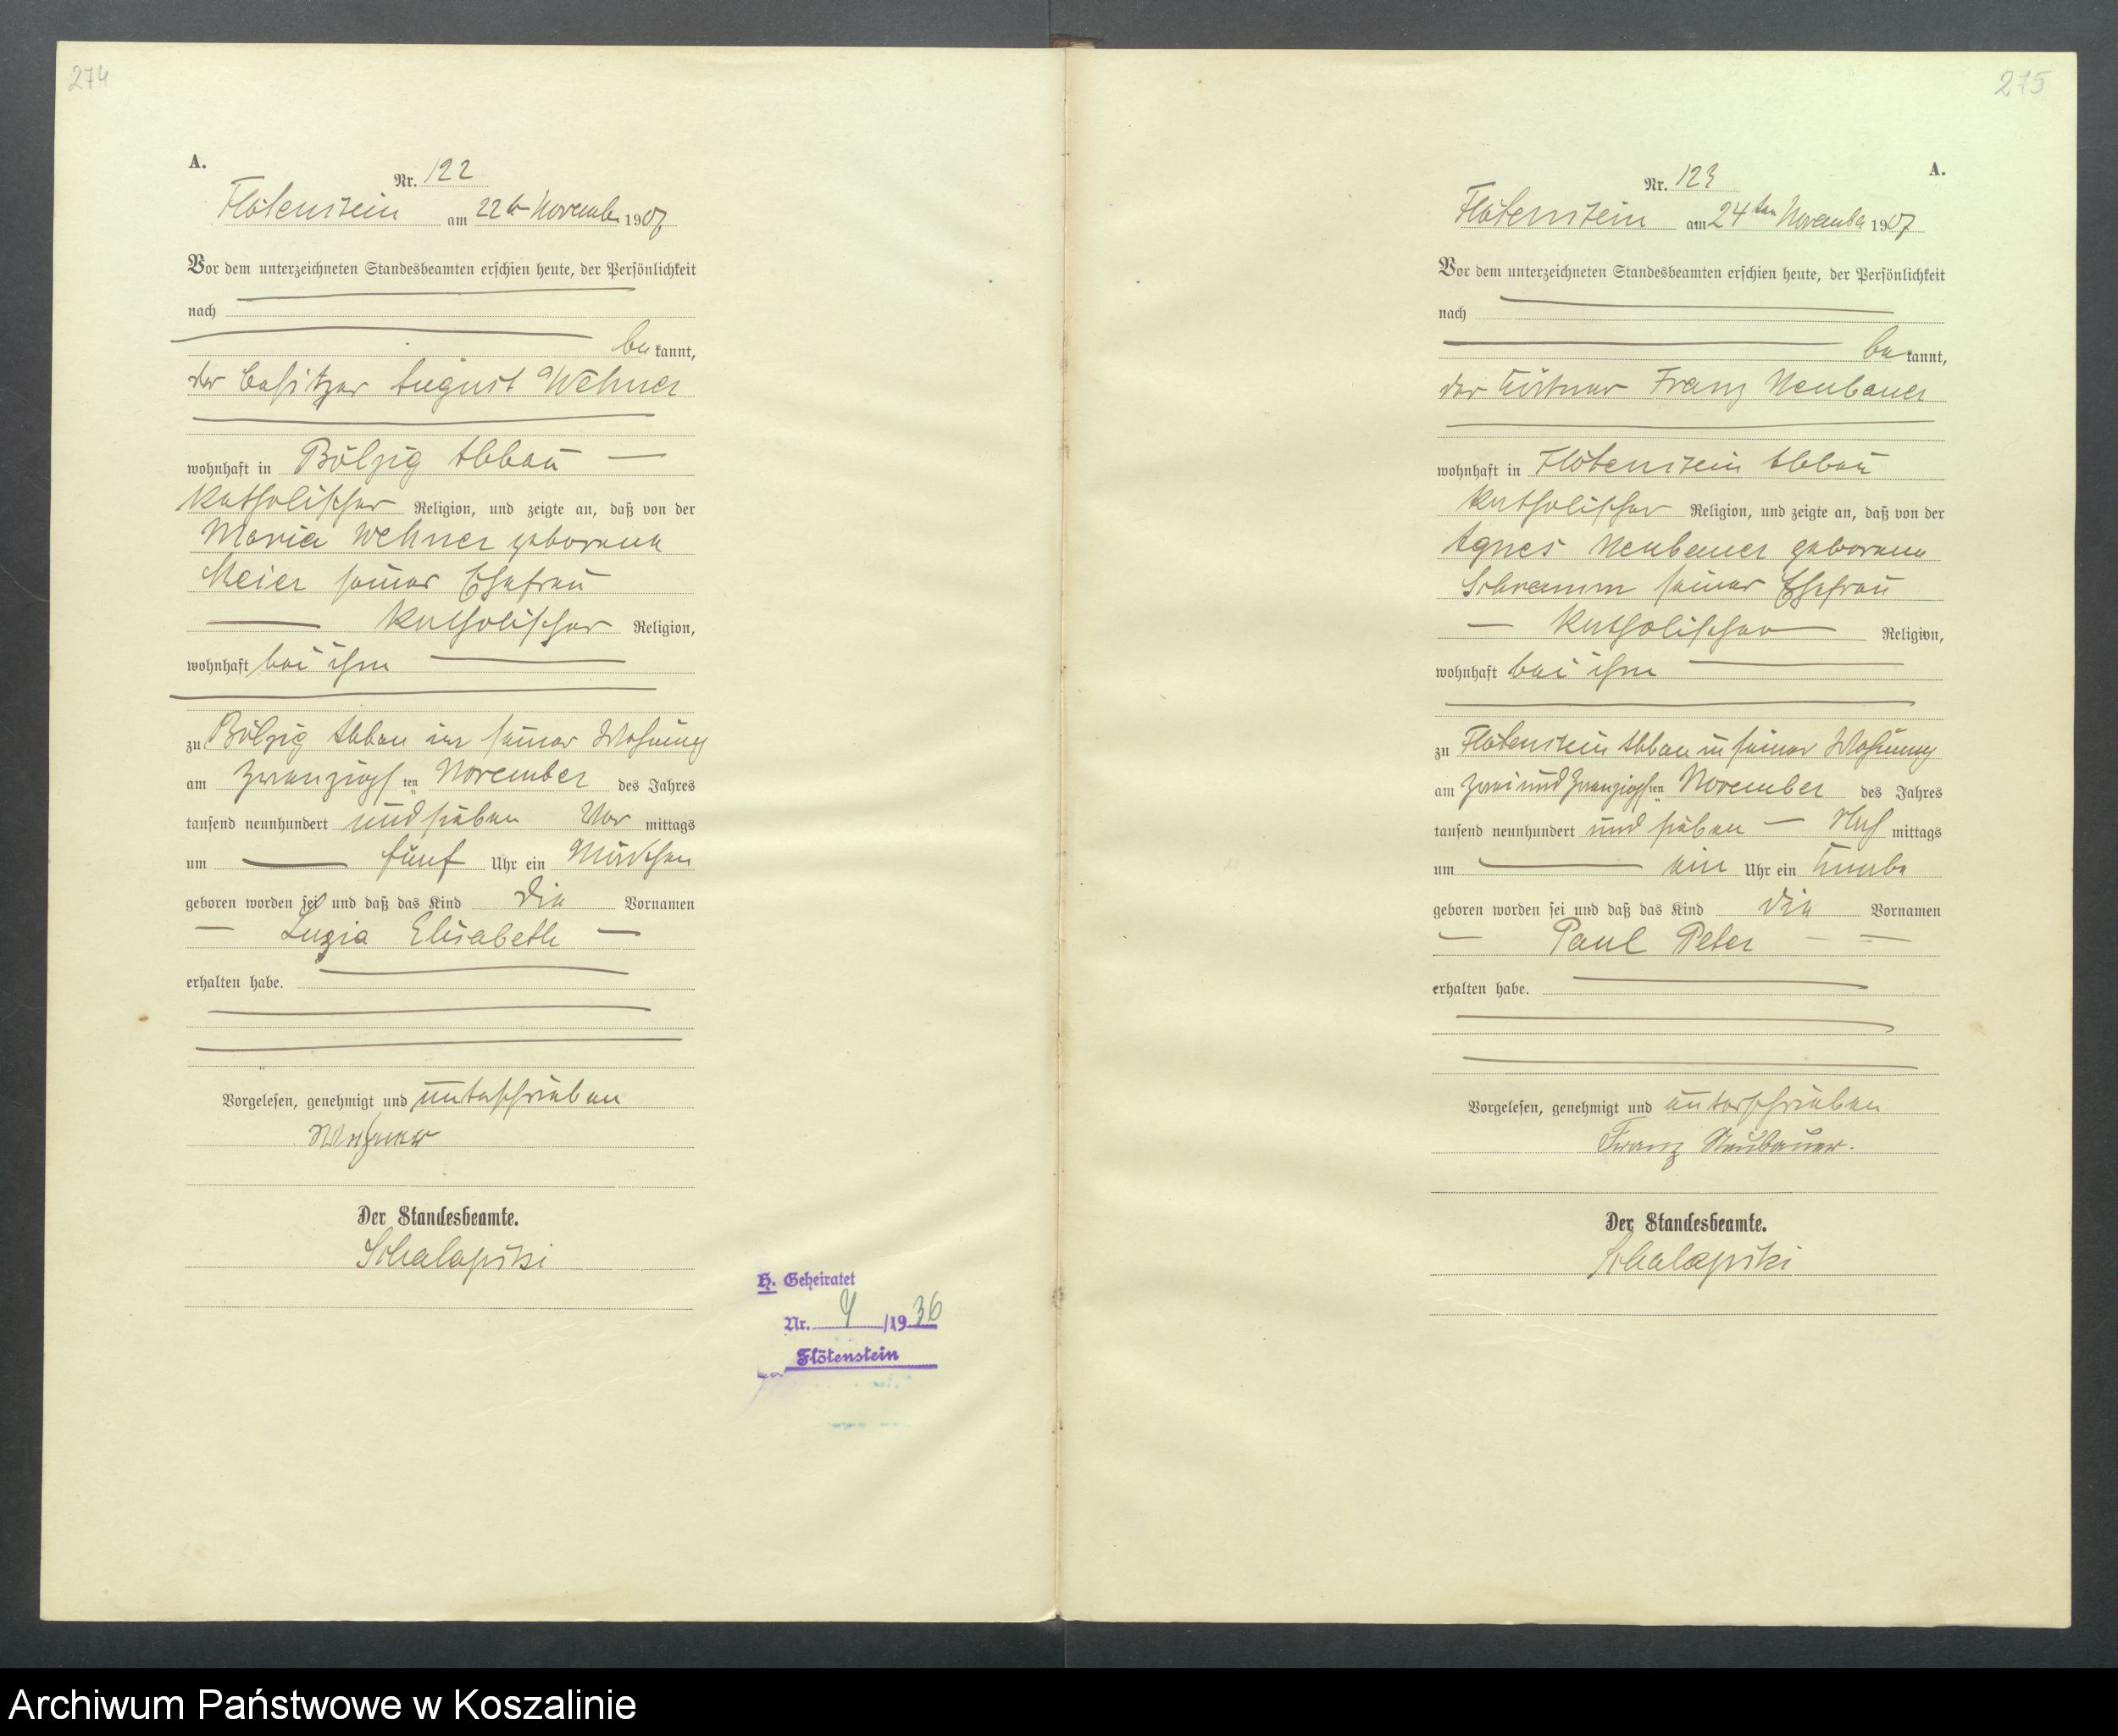 274
A.
Nr. 122
Flötenstein am 22ten November 1907
Vor dem unterzeichneten Standesbeamten erschien heute, der Persönlichkeit
nach
be kannt,
der Besitzer August Wehner
wohnhaft in Bölzig Abbau
katholischer Religion, und zeigte an, daß von der
Maria Wehner geborene
Meier seiner Ehefrau
katholischer Religion,
wohnhaft bei ihm
zu Bölzig Abbau in seiner Wohnung
am zwanzigsten November des Jahres
tausend neunhundert und sieben Vor mittags
um fünf Uhr ein Mädchen
geboren worden sei und daß das Kind die Vornamen
Luzia Elisabeth
erhalten habe.
Vorgelesen, genehmigt und unterschrieben
Wehner
Der Standesbeamte.
Schalapski
H. Geheiratet
Nr. 4 /1936
Flötenstein
275
A.
Nr. 123
Flötenstein am 24ten November 1907
Vor dem unterzeichneten Standesbeamten erschien heute, der Persönlichkeit
nach
be kannt,
der Franz Neubauer
wohnhaft in Flötenstein Abbau
katholischer Religion, und zeigte an, daß von der
Agnes Neubauer geborene
Schramm seiner Ehefrau
katholischer Religion,
wohnhaft bei ihm
zu Flötenstein Abbau in seiner Wohnung
am zwei und zwanzigsten November des Jahres
tausend neunhundert und sieben Nach mittags
um ein Uhr ein Knabe
geboren worden sei und daß das Kind die Vornamen
Paul Peter
erhalten habe.
Vorgelesen, genehmigt und unterschrieben
Franz Neubauer.
Der Standesbeamte.
Schalapski
Archiwum Państwowe w Koszalinie